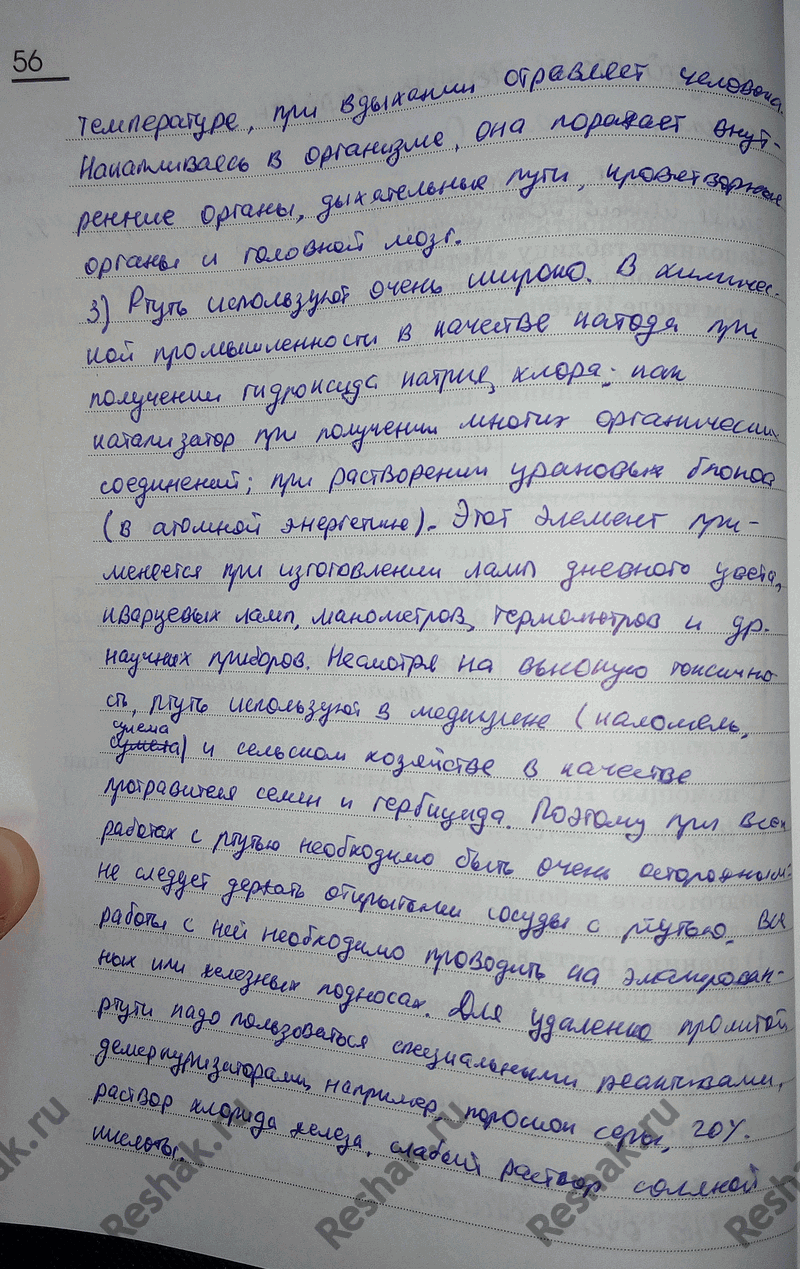 56
температуре, при вдыхании отравляет человека.
Накапливаясь в организме, она поражает внут-
ренние органы, дыхательные пути, кроветворные
органы и головной мозг.
3) Ртуть используют очень широко. В химичес-
кой промышленности в качестве катода при
получении гидроксида натрия, хлора; как
катализатор при получении многих органических
соединений; при растворении урановых блоков
(в атомной энергетике). Этот элемент при-
меняется при изготовлении ламп дневного цвета,
кварцевых ламп, манометров, термометров и др.
научных приборов. Несмотря на высокую токсично-
сть, ртуть используют в медицине (каломель,
сулема
) и сельском хозяйстве в качестве
протравителя семян и гербицида. Поэтому при всех
работах с ртутью необходимо быть очень осторожным:
не следует держать открытыми сосуды с ртутью. Все
работы с ней необходимо проводить на эмалирован-
ных или железных подносах. Для удаления пролитой
ртути надо пользоваться специальными реактивами,
демеркуризаторами, например, порошок серы, 20%.
раствор хлорида железа, слабый раствор соляной
кислоты.
Reshak.ru
Reshak.ru
Reshak.ru
Reshak.ru